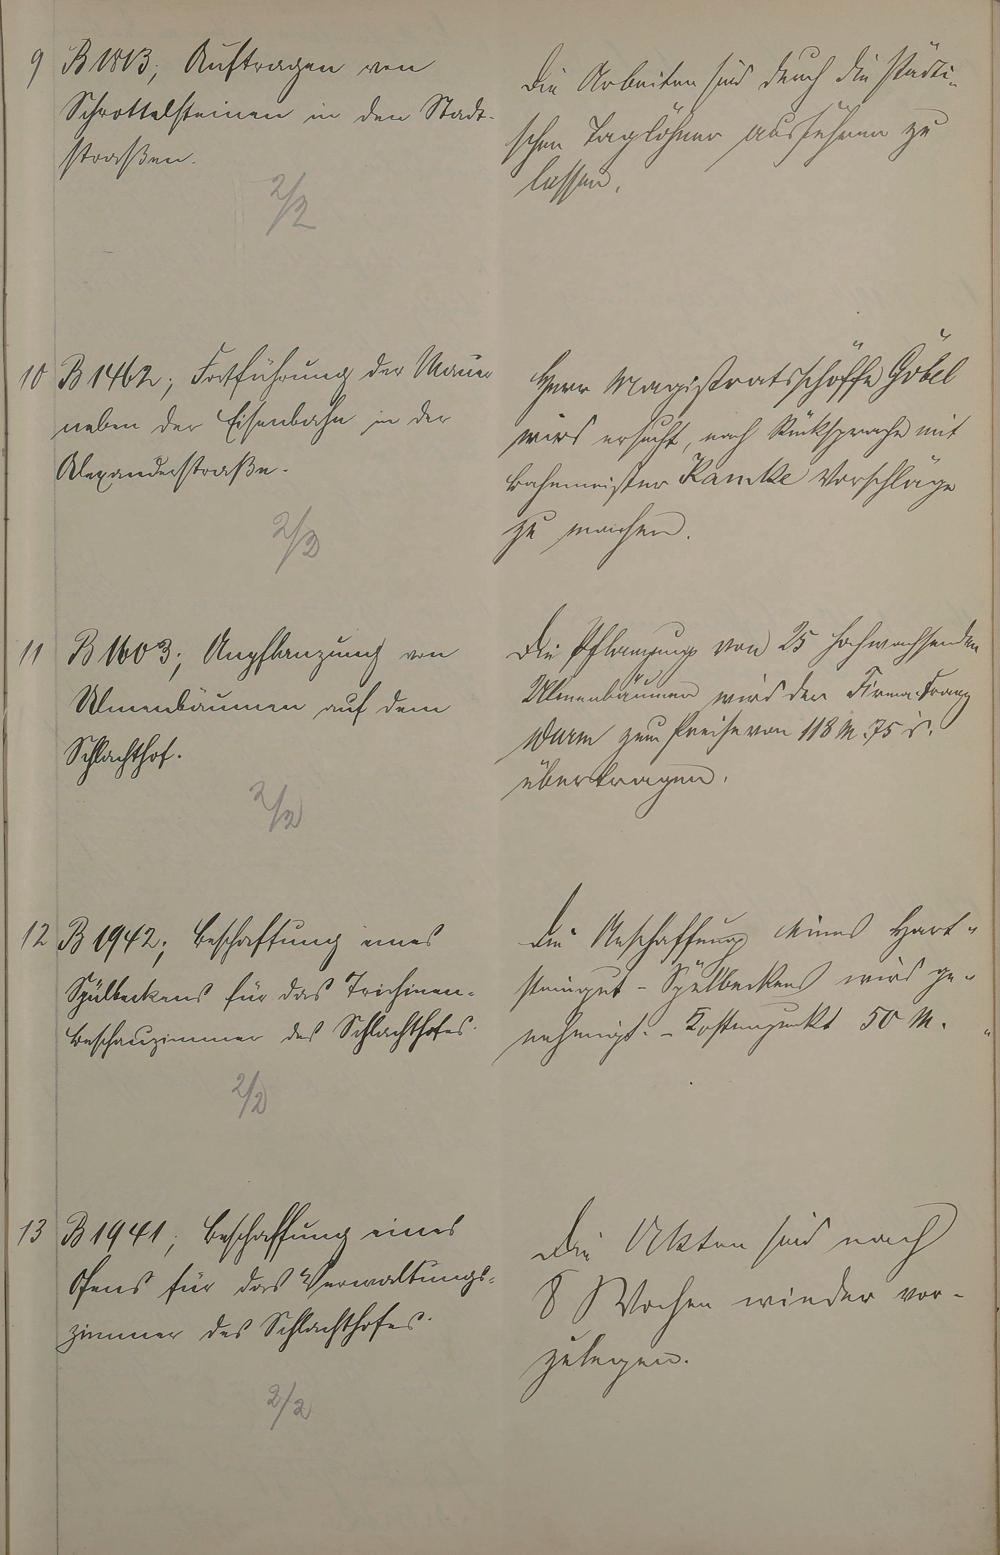 9 B 1813; Auftragen von
Schrottelsteinen in den Stadt-
straßen.
2/2
Die Arbeiten sind durch die städti-
schen Taglöhner ausführen zu
lassen.
10 B 1462; Fortführung der Mauer
neben der Eisenbahn in der
Alexanderstraße.
2/2
Herr Magistratsschöffe Göbel
wird ersucht, nach Rücksprache mit
Bahnmeister Kamke Vorschläge
zu machen.
11 B 1603; Anpflanzung von
Ulmenbäumen auf dem
Schlachthof.
2/2
Die Pflanzung von 25 hochwachsenden
Ulmenbäumen wird der Firma Franz
Wurm zum Preise von 118 M. 75 d.
übertragen.
12 B 1942; Beschaffung eines
Spülbeckens für das Trichinen-
beschauzimmer des Schlachthofes.
2/2
Die Anschaffung eines Hart-
steingut-Spülbeckens wird ge-
nehmigt. - Kostenpunkt 50 M.
13 B 1941; Beschaffung eines
Ofens für das Verwaltungs-
zimmer des Schlachthofes.
2/2
Die Akten sind nach
8 Wochen wieder vor-
zulegen.